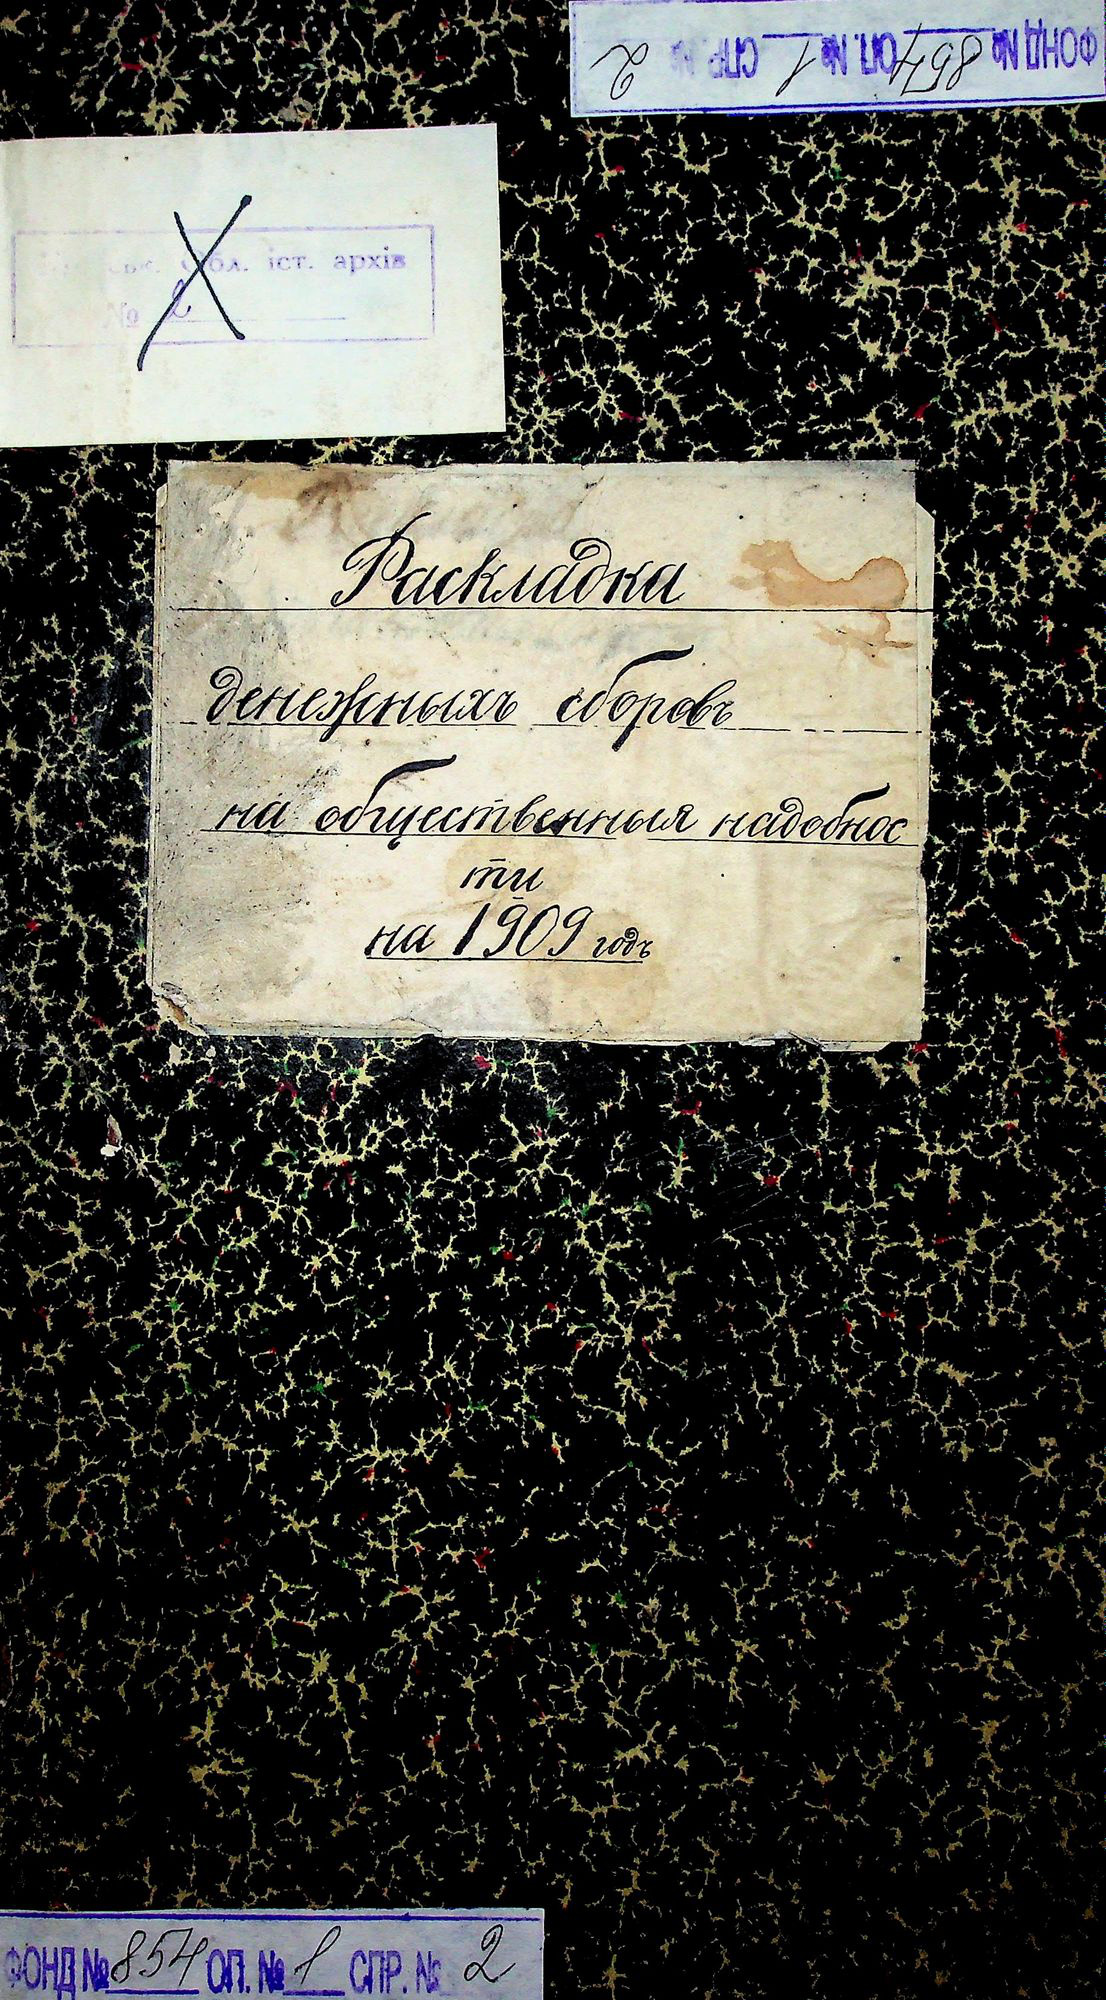 ФОНД № 854 ОП. № 1 СПР. № 2
обл. іст. архів
№ 2
Раскладка
денежныхъ сборовъ
на общественныя надобнос
ти
на 1909 годъ
ФОНД № 854 ОП. № 1 СПР. № 2